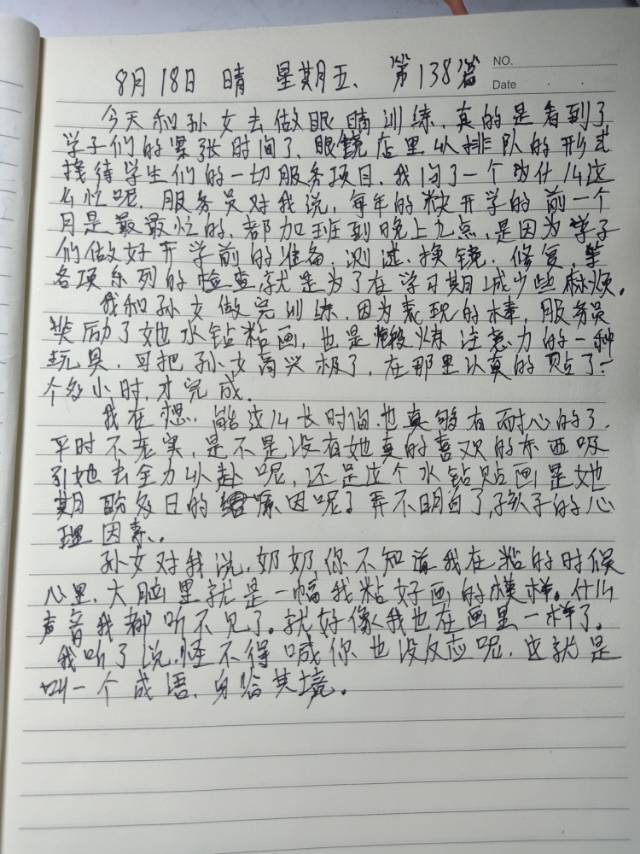 NO.
8月18日 晴 星期五、 第138篇
Date
今天和孙女去做眼睛训练，真的是看到了
学子们的紧张时间了，眼镜店里以排队的形式
接待学生们的一切服务项目，我问了一个为什么这
么忙呢，服务员对我说，每年的快开学的前一个
月是最最忙的，都加班到晚上九点，是因为学子
们做好开学前的准备，测试，换镜，修复，等
各项系列的检查，就是为了在学习期减少些麻烦。
我和孙女做完训练，因为表现的棒，服务员
奖励了她水钻粘画，也是锻炼注意力的一种
玩具，可把孙女高兴极了，在那里认真的贴了一
个多小时，才完成。
我在想，能这么长时间，也真够有耐心的了，
平时不老实，是不是没有她真的喜欢的东西吸
引她去全力以赴呢，还是这个水钻贴画是她
期盼多日的原因呢？弄不明白了，孩子的心
理因素。
孙女对我说，奶奶你不知道我在粘的时候
心里，大脑里就是一幅我粘好画的模样。什么
声音我都听不见了。就好像我也在画里一样了。
我听了说，怪不得喊你也没反应呢，这就是
叫一个成语，身临其境。